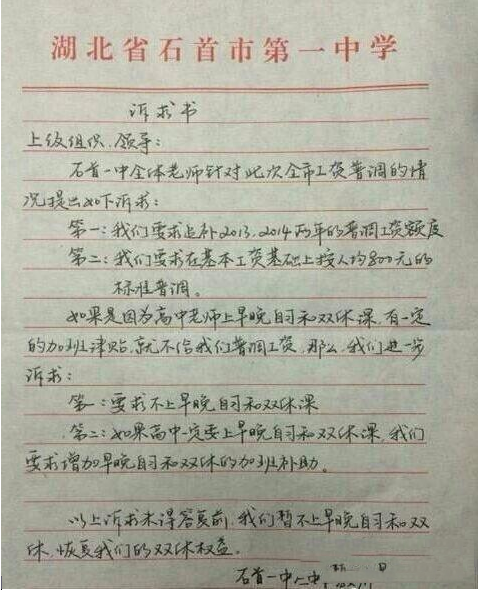 湖北省石首市第一中学
诉求书
上级组织、领导：
石首一中全体老师针对此次全市工资普调的情
况提出如下诉求：
第一：我们要求追补2013、2014两年的普调工资额度
第二：我们要求在基本工资基础上按人均800元的
标准普调。
如果是因为高中老师上早晚自习和双休课，有一定
的加班津贴，就不给我们普调工资，那么，我们进一步
诉求：
第一：要求不上早晚自习和双休课
第二：如果高中一定要上早晚自习和双休课，我们
要求增加早晚自习和双休的加班补助。
以上诉求未得答复前，我们暂不上早晚自习和双
休，恢复我们的双休权益。
石首一中